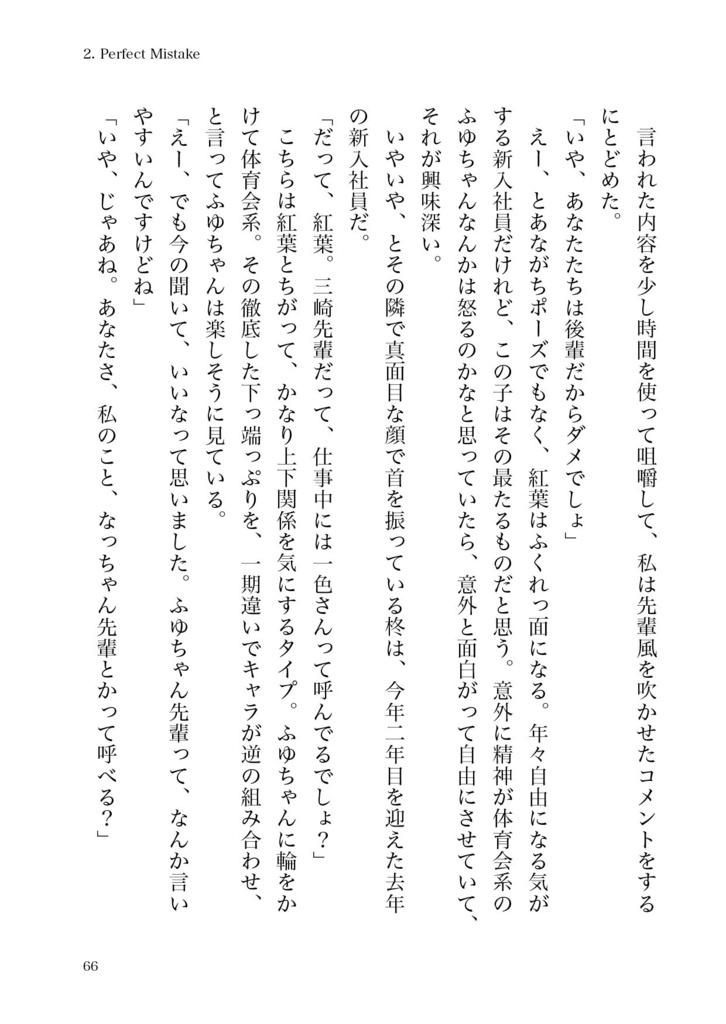 2. Perfect Mistake
言われた内容を少し時間を使って咀嚼して、私は先輩風を吹かせたコメントをする
にとどめた。
「いや、あなたたちは後輩だからダメでしょ」
えー、とあながちポーズでもなく、紅葉はふくれっ面になる。年々自由になる気が
する新入社員だけれど、この子はその最たるものだと思う。意外に精神が体育会系の
ふゆちゃんなんかは怒るのかなと思っていたら、意外と面白がって自由にさせていて、
それが興味深い。
いやいや、とその隣で真面目な顔で首を振っている柊は、今年二年目を迎えた去年
の新入社員だ。
「だって、紅葉。三崎先輩だって、仕事中には一色さんって呼んでるでしょ？」
こちらは紅葉とちがって、かなり上下関係を気にするタイプ。ふゆちゃんに輪をか
けて体育会系。その徹底した下っ端っぷりを、一期違いでキャラが逆の組み合わせ、
と言ってふゆちゃんは楽しそうに見ている。
「えー、でも今の聞いて、いいなって思いました。ふゆちゃん先輩って、なんか言い
やすいんですけどね」
「いや、じゃあね。あなたさ、私のこと、なっちゃん先輩とかって呼べる？」
66